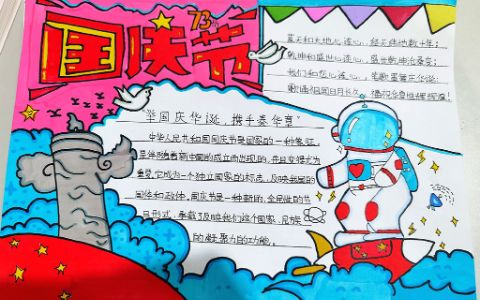 国庆节
73th
蓝天和大地心连心,经天纬地数十年;
乾坤和盛世心连心,盛世乾坤沧桑变;
我们和党心连心,笔歌墨舞庆华诞:
歌唱祖国日月长久,祝华夏辉煌!
"举国庆华诞,携手奏华章"
中华人民共和国国庆节是国家的一种象征,
是伴随着新中国的成立而出现的,并且变得尤为
重要,它成为一个独立国家的标志,反映我国的
国体和政体,国庆节是一种新的、全民性的节
日形式,承载了反映我们这个国家、民族
的凝聚力的功能。